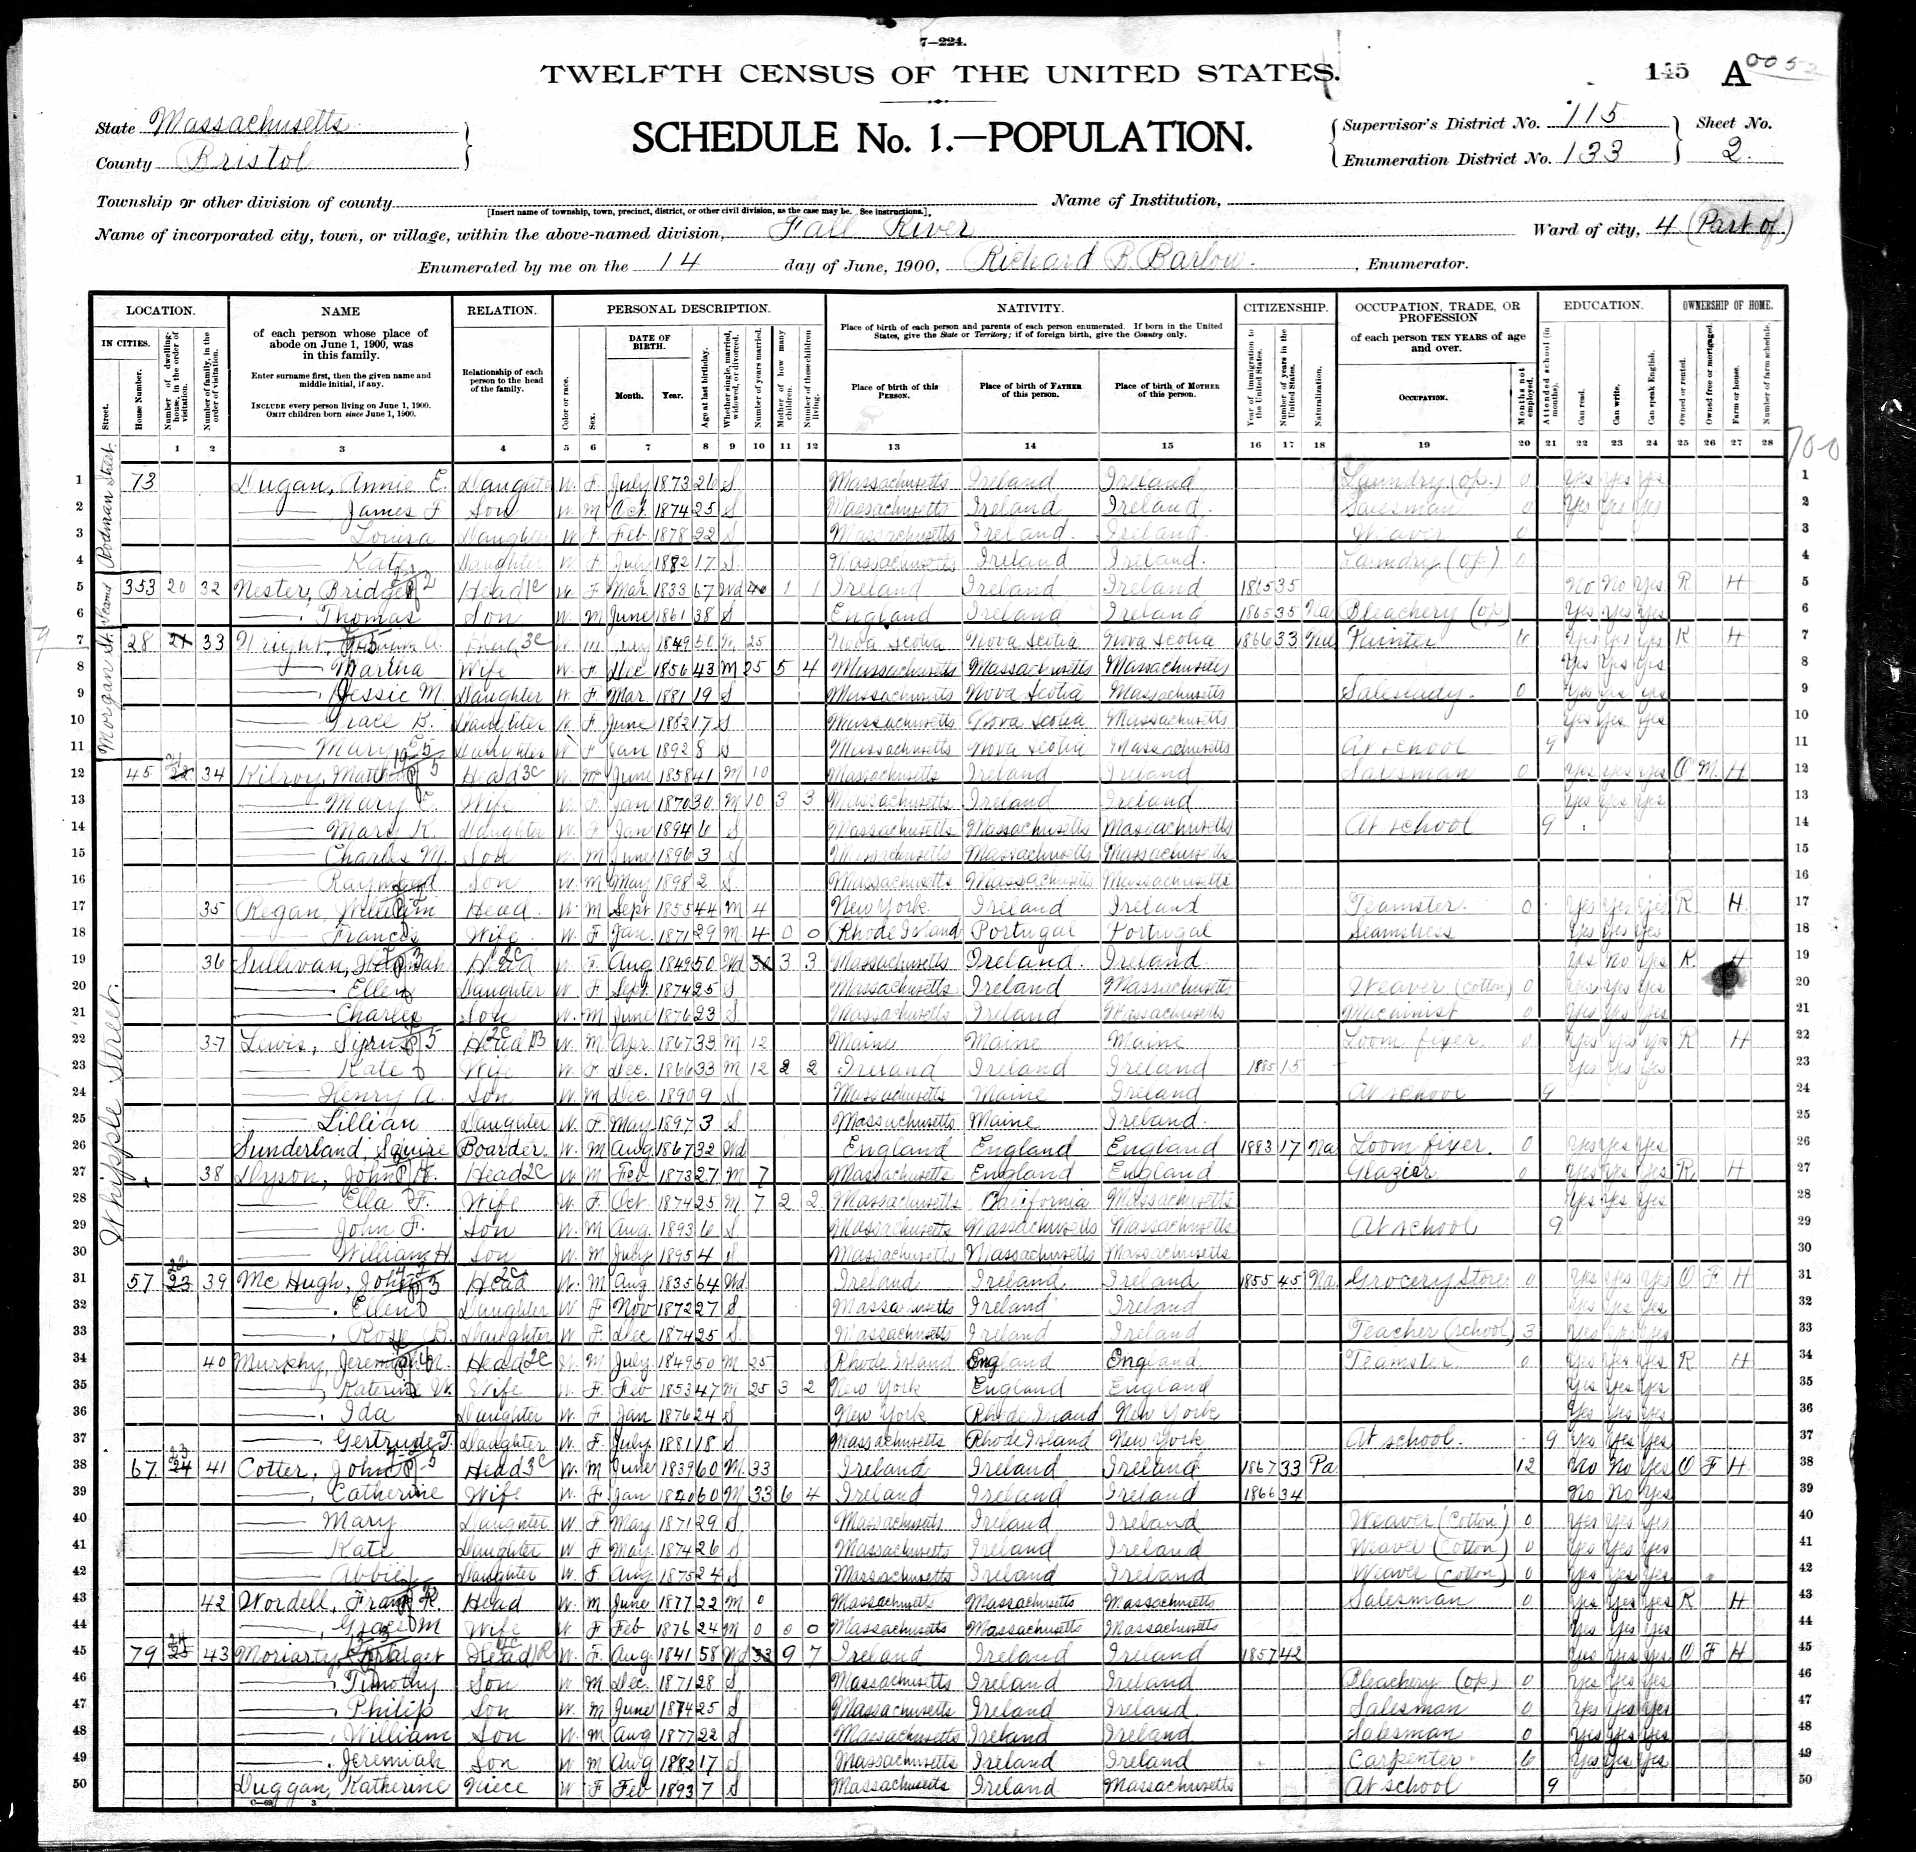 7—224.
TWELFTH CENSUS OF THE UNITED STATES.
145 A 0052
State Massachusetts
County Bristol
SCHEDULE No. 1.—POPULATION.
Supervisor's District No. 115
Enumeration District No. 133
Sheet No. 2.
Township or other division of county
[Insert name of township, town, precinct, district, or other civil division, as the case may be. See instructions.]
Name of Institution,
Name of incorporated city, town, or village, within the above-named division, Fall River
Ward of city, 4 (Part of)
Enumerated by me on the 14 day of June, 1900, Richard B. Barlow. , Enumerator.
LOCATION. NAME RELATION. PERSONAL DESCRIPTION. NATIVITY. CITIZENSHIP. OCCUPATION, TRADE, OR PROFESSION EDUCATION. OWNERSHIP OF HOME.
IN CITIES. Street. House Number. Number of dwelling-house, in the order of visitation. Number of family, in the order of visitation.
of each person whose place of abode on June 1, 1900, was in this family.
Enter surname first, then the given name and middle initial, if any.
INCLUDE every person living on June 1, 1900. OMIT children born since June 1, 1900.
Relationship of each person to the head of the family.
Color or race. Sex. DATE OF BIRTH. Month. Year. Age at last birthday. Whether single, married, widowed, or divorced. Number of years married. Mother of how many children. Number of these children living.
Place of birth of each person and parents of each person enumerated. If born in the United States, give the State or Territory; if of foreign birth, give the Country only.
Place of birth of this PERSON. Place of birth of FATHER of this person. Place of birth of MOTHER of this person.
Year of immigration to the United States. Number of years in the United States. Naturalization.
of each person TEN YEARS of age and over.
OCCUPATION. Months not employed.
Attended school (in months). Can read. Can write. Can speak English.
Owned or rented. Owned free or mortgaged. Farm or house. Number of farm schedule.
1 2 3 4 5 6 7 8 9 10 11 12 13 14 15 16 17 18 19 20 21 22 23 24 25 26 27 28
Rodman Street.
Morgan St.
Whipple Street.
1 73 Dugan, Annie E. Daughter W F July 1873 26 S Massachusetts Ireland Ireland Laundry (op.) 0 Yes Yes Yes 1
2 James F Son W M Oct 1874 25 S Massachusetts Ireland Ireland. Salesman 0 Yes Yes Yes 2
3 Louisa Daughter W F Feb 1878 22 S Massachusetts Ireland. Ireland Weaver 0 3
4 Kate Daughter W F July 1882 17 S Massachusetts Ireland Ireland. Laundry (op) 0 4
5 353 20 32 Nester, Bridget Head W F Mar 1833 67 Wd 40 1 1 Ireland Ireland Ireland 1865 35 No No Yes R H 5
6 Thomas Son W M June 1861 38 S England Ireland Ireland 1865 35 Na Bleachery (op) Yes Yes Yes 6
7 28 21 33 Wright, 1849 50 M 25 Nova Scotia Nova Scotia Nova Scotia 1866 33 Na Painter 6 Yes Yes Yes R H 7
8 Martha Wife W F Dec 1856 43 M 25 5 4 Massachusetts Massachusetts Massachusetts Yes Yes Yes 8
9 Jessie M. Daughter W F Mar 1881 19 S Massachusetts Nova Scotia Massachusetts Saleslady. 0 Yes Yes Yes 9
10 Grace B. Daughter W F June 1882 17 S Massachusetts Nova Scotia Massachusetts Yes Yes Yes 10
11 Mary Daughter W F Jan 1892 8 S Massachusetts Nova Scotia Massachusetts At school 9 11
12 45 22 34 Kilroy, Matthew Head W M June 1858 41 M 10 Massachusetts Ireland Ireland Salesman 0 Yes Yes Yes O M H 12
13 Mary Wife W F Jan 1870 30 M 10 3 3 Massachusetts Ireland Ireland Yes Yes Yes 13
14 Mary K. Daughter W F Jan 1894 6 S Massachusetts Massachusetts Massachusetts At school 9 14
15 Charles M. Son W M June 1896 3 S Massachusetts Massachusetts Massachusetts 15
16 Raymond Son W M May 1898 2 S Massachusetts Massachusetts Massachusetts 16
17 35 Regan, William Head W M Sept 1855 44 M 4 New York Ireland Ireland Teamster. 0 Yes Yes Yes R H 17
18 Frances Wife W F Jan. 1871 29 M 4 0 0 Rhode Island Portugal Portugal Seamstress Yes Yes Yes 18
19 36 Sullivan, Head W F Aug 1849 50 Wd 30 3 3 Massachusetts Ireland. Ireland. Yes No Yes R. H 19
20 Ellen Daughter W F Sept 1874 25 S Massachusetts Ireland Massachusetts Weaver (cotton) 0 Yes Yes Yes 20
21 Charles Son W. M June 1876 23 S Massachusetts Ireland Massachusetts Machinist 0 Yes Yes Yes 21
22 37 Lewis, Syrus Head W M Apr 1867 33 M 12 Maine Maine Maine Loom fixer. 0 Yes Yes Yes R H 22
23 Kate Wife W F Dec. 1866 33 M 12 2 2 Ireland Ireland Ireland 1885 15 Yes Yes Yes 23
24 Henry A. Son W. M Dec 1890 9 S Massachusetts Maine Ireland At school 9 24
25 Lillian Daughter W. F. May 1897 3 S Massachusetts Maine Ireland. 25
26 Sunderland, Squire Boarder. W. M Aug 1867 32 Wd England England England 1883 17 Na Loom fixer. 0 Yes Yes Yes 26
27 38 Dyson, John H. Head W M Feb 1873 27 M 7 Massachusetts England England Glazier 0 Yes Yes Yes R H 27
28 Ella F. Wife W. F. Oct. 1874 25 M 7 2 2 Massachusetts California Massachusetts Yes Yes Yes 28
29 John F. Son W. M Aug. 1893 6 S Massachusetts Massachusetts Massachusetts At school 9 29
30 William H. Son W. M July 1895 4 S Massachusetts Massachusetts Massachusetts 30
31 57 23 39 Mc Hugh, John Head W. M Aug 1835 64 Wd Ireland Ireland Ireland 1855 45 Na Grocery Store 0 Yes Yes Yes O F H 31
32 Ellen Daughter W F Nov 1872 27 S Massachusetts Ireland Ireland Yes Yes Yes 32
33 Rose B. Daughter W F. Dec 1874 25 S Massachusetts Ireland Ireland Teacher (school) 3 Yes Yes Yes 33
34 40 Murphy, Jeremiah Head W M July 1849 50 M 25 Rhode Island England England Teamster 0 Yes Yes Yes R H 34
35 Katerine W. Wife W. F. Feb 1853 47 M 25 3 2 New York England England Yes Yes Yes 35
36 Ida Daughter W. F Jan 1876 24 S New York Rhode Island New York Yes Yes Yes 36
37 Gertrude T. Daughter W. F. July. 1881 18 S Massachusetts Rhode Island New York At school. 9 No Yes Yes 37
38 67. 24 41 Cotter, John Head W. M June 1839 60 M. 33 Ireland Ireland Ireland 1867 33 Pa 12 No No Yes O F H 38
39 Catherine Wife W. F Jan 1840 60 M 33 6 4 Ireland Ireland Ireland 1866 34 No No Yes 39
40 Mary Daughter W F May 1871 29 S Massachusetts Ireland Ireland Weaver (Cotton) 0 Yes Yes Yes 40
41 Kate Daughter W F May. 1874 26 S Massachusetts Ireland Ireland Weaver (Cotton) 0 Yes Yes Yes 41
42 Abbie Daughter W. F. Aug 1875 24 S Massachusetts Ireland Ireland Weaver (Cotton) 0 Yes Yes Yes 42
43 42 Wordell, Frank R. Head W. M June 1877 22 M 0 Massachusetts Massachusetts Massachusetts Salesman 0 Yes Yes Yes R H 43
44 Grace M Wife W F Feb 1876 24 M 0 0 0 Massachusetts Massachusetts Massachusetts Yes Yes Yes 44
45 79 25 43 Moriarty, Bridget Head W. F. Aug. 1841 58 Wd 33 9 7 Ireland Ireland Ireland 1857 42 Yes Yes Yes O F H 45
46 Timothy Son W M Dec. 1871 28 S Massachusetts Ireland Ireland Bleachery (op) 0 Yes Yes Yes 46
47 Philip Son W. M June 1874 25 S Massachusetts Ireland Ireland. Salesman 0 Yes Yes Yes 47
48 William Son W. M Aug 1877 22 S Massachusetts Ireland Ireland Salesman 0 Yes Yes Yes 48
49 Jeremiah Son W M Aug 1882 17 S Massachusetts Ireland Ireland Carpenter. 6 Yes Yes Yes 49
50 Duggan, Katherine Niece W F Feb 1893 7 S Massachusetts Ireland Massachusetts At school 9 50